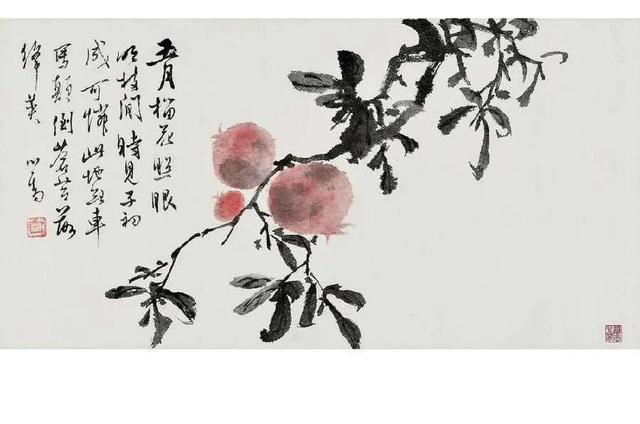 五月榴花照眼
明枝間時見子初
成可憐此地無車
馬顛倒蒼苔落
絳英 心畬